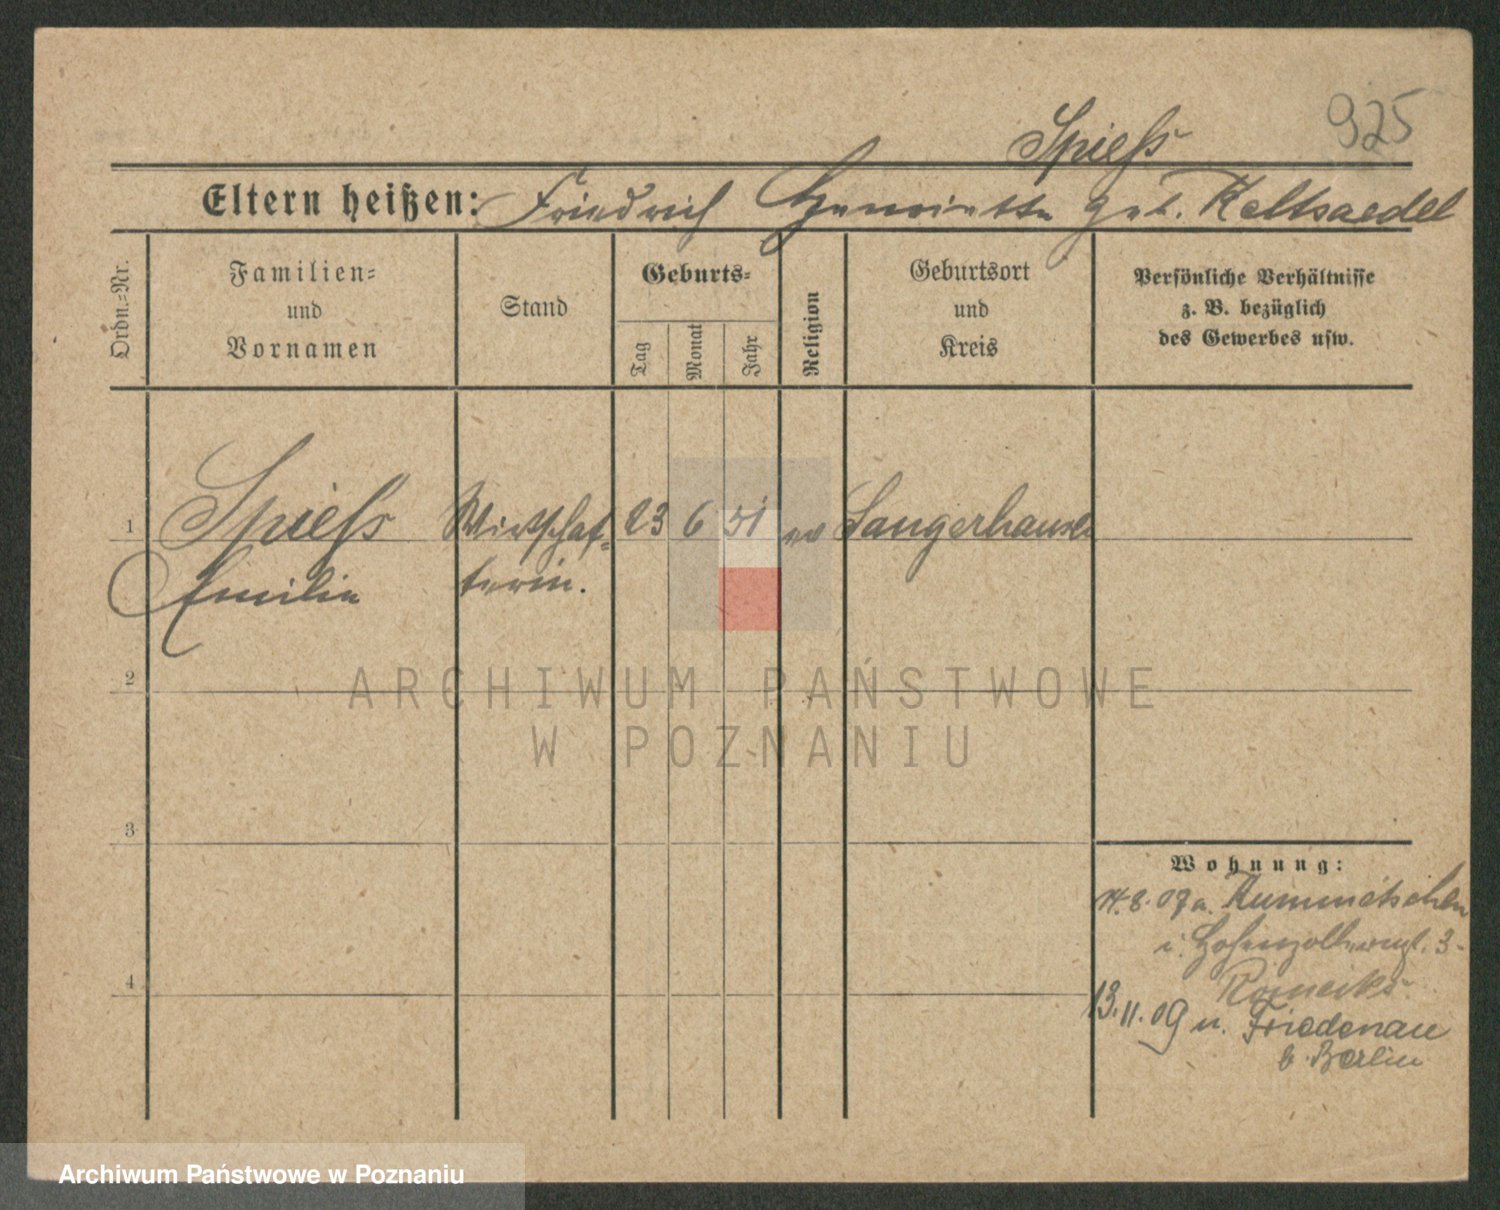 925
Spieſs
Eltern heißen: Friedrich Henriette geb. Keltsaedel
Ordn.=Nr.
Familien=
und
Vornamen
Stand
Geburts=
Tag
Monat
Jahr
Religion
Geburtsort
und
Kreis
Persönliche Verhältnisse
z. B. bezüglich
des Gewerbes usw.
1
Spieſs Wirtschaf= 23 6 51 ev Sangerhausen
Emilie terin.
2
ARCHIWUM PAŃSTWOWE
W POZNANIU
3
Wohnung:
14.8.07 a.
i. 3
4
13.11.09 n. Friedenau
b. Berlin
Archiwum Państwowe w Poznaniu